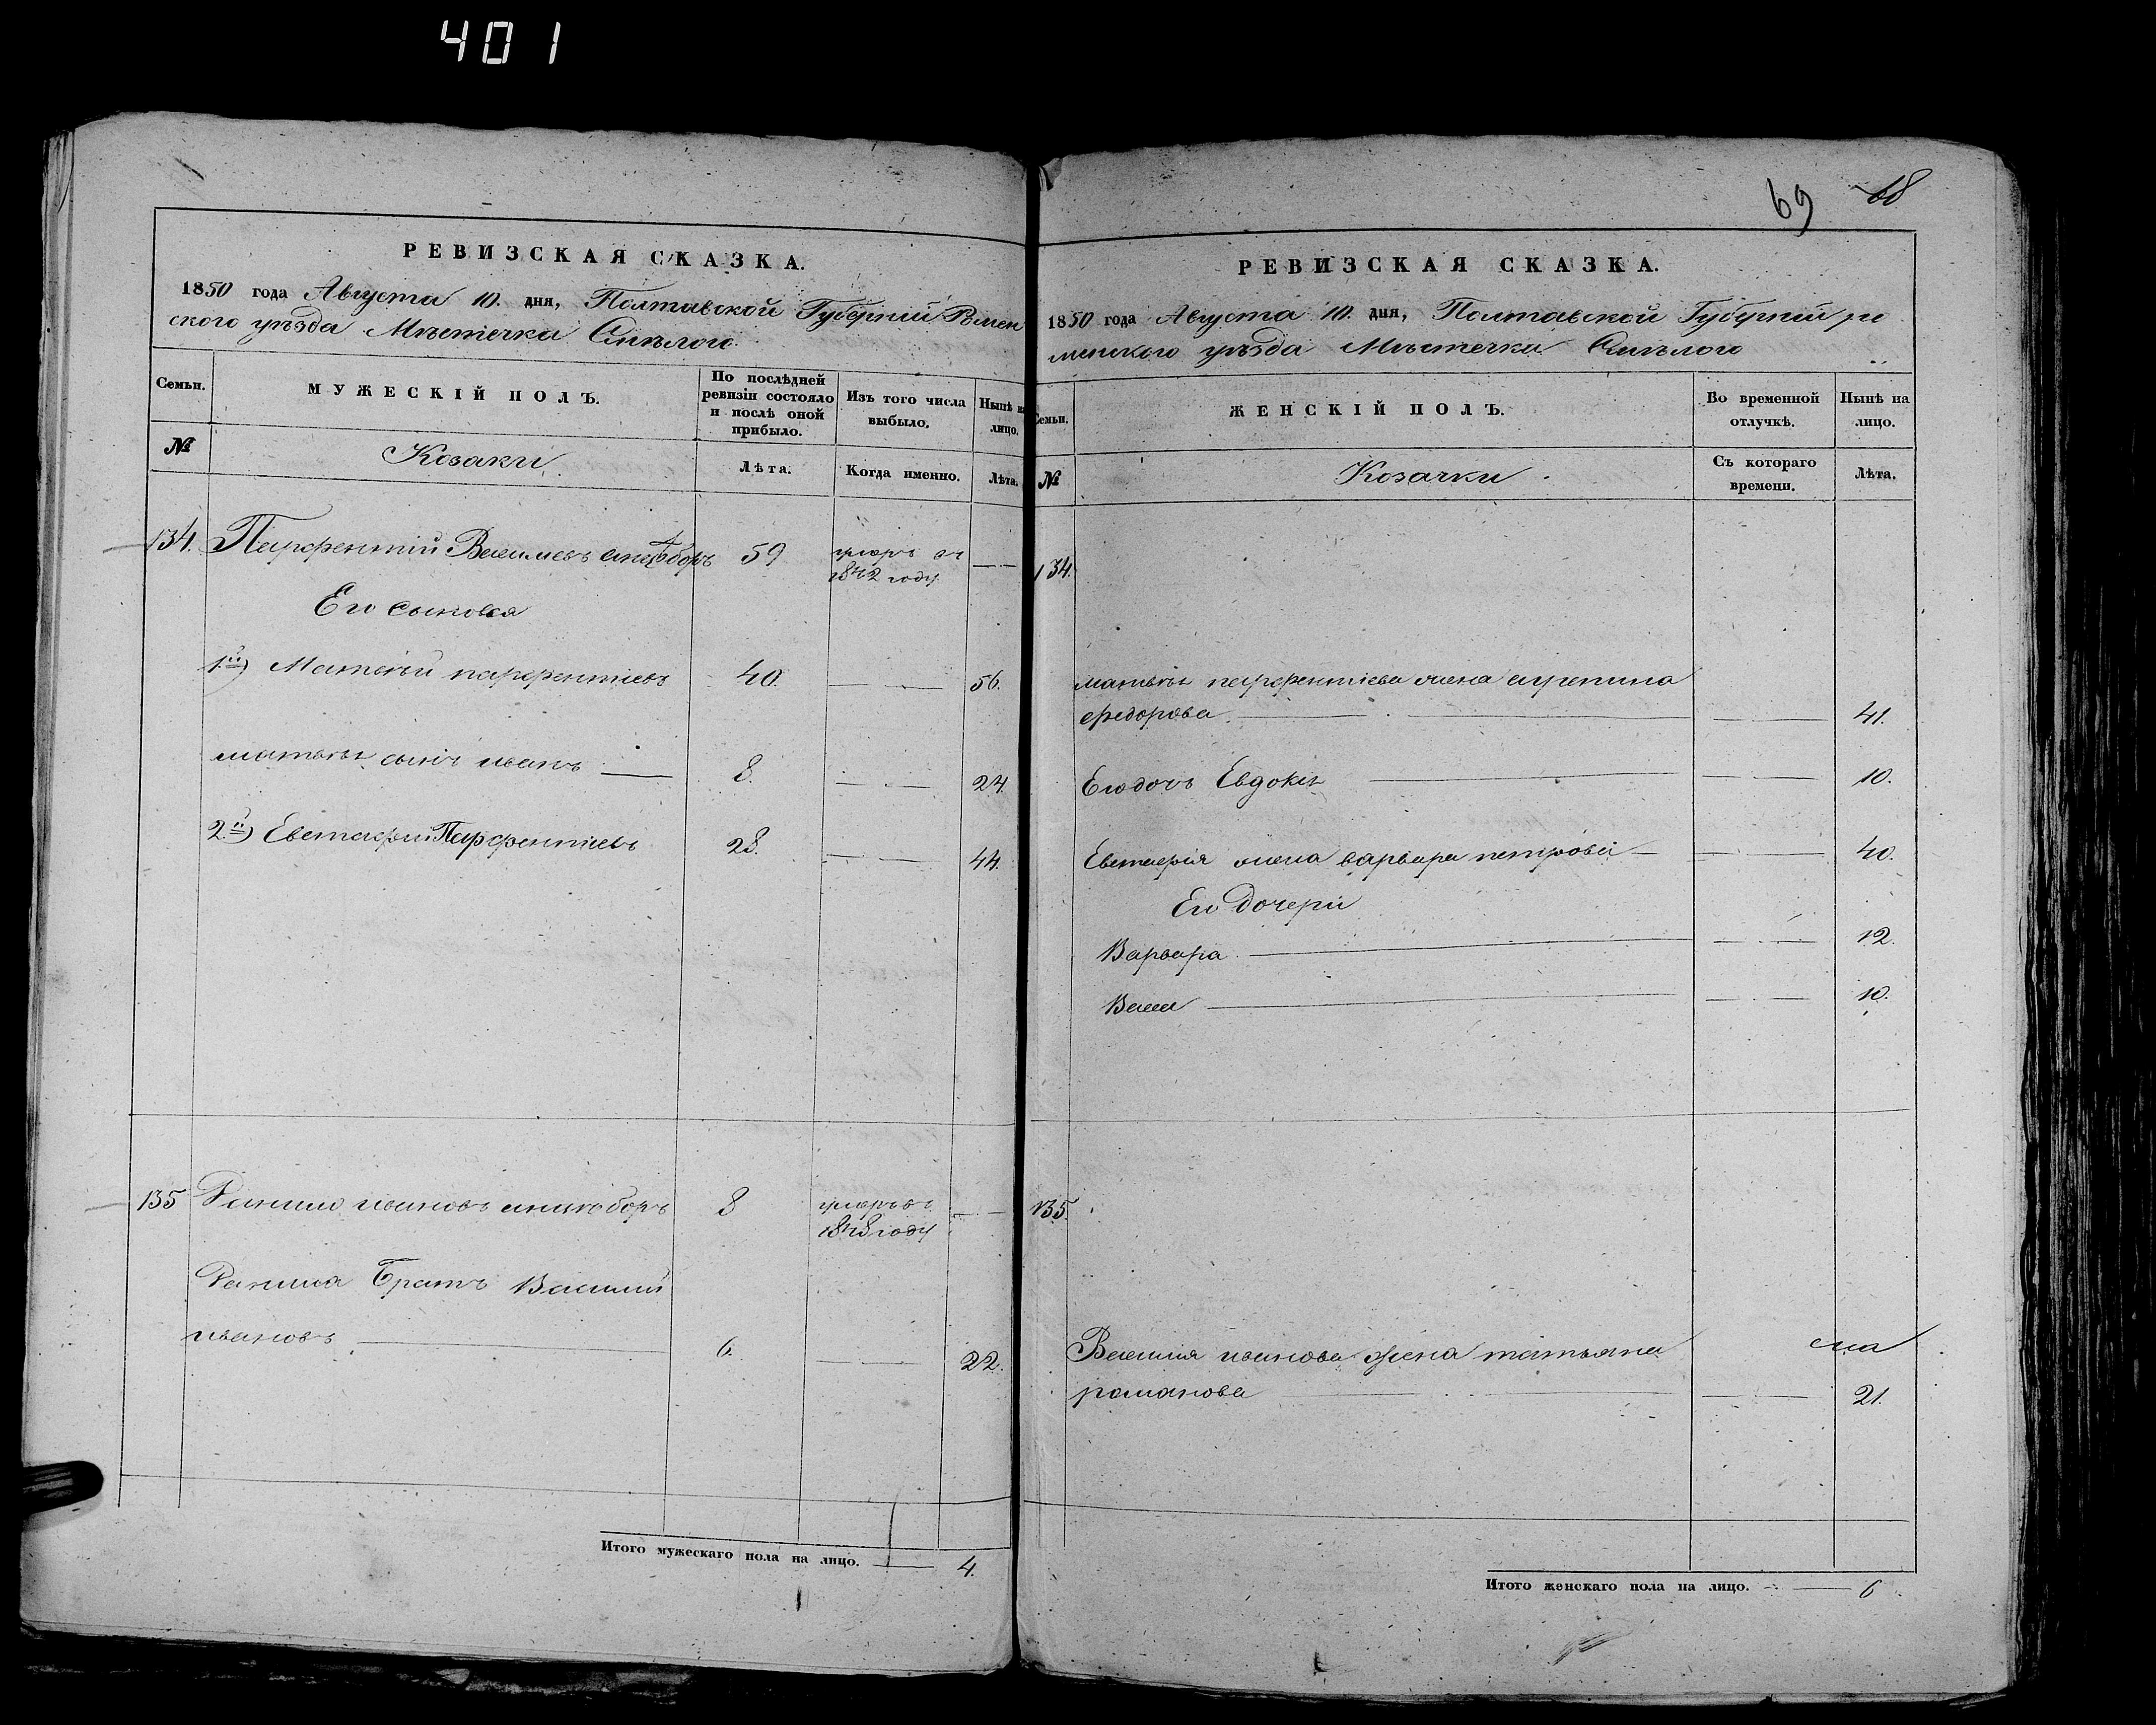 401
РЕВИЗСКАЯ СКАЗКА.
1850 года Августа 10. дня, Полтавской Губерніи Ромен
ского уѣзда Мѣстечка Смѣлого
Семьи.
МУЖЕСКІЙ ПОЛЪ.
По послѣдней ревизіи состояло и послѣ оной прибыло.
Изъ того числа выбыло.
Нынѣ на лицо.
№
Козаки
Лѣта.
Когда именно.
Лѣта.
134. Парфентій Васильевъ 59 умеръ въ 1842 году
Его сыновья
1й) Матвѣй парфентіевъ 40. 56.
матвѣя сынъ иванъ 8. 24.
2й) Евстафій Парфентіевъ 28. 44.
135 Данило ивановъ 8 умеръ въ 1848 году
Данила Братъ Василий
ивановъ 6. 22.
Итого мужескаго пола на лицо. 4.
69 68
РЕВИЗСКАЯ СКАЗКА.
1850 года Августа 10. дня, Полтавской Губерніи ро
менского уѣзда Мѣстечка Смѣлого
Семьи.
ЖЕНСКІЙ ПОЛЪ.
Во временной отлучкѣ.
Нынѣ на лицо.
№
Козачки
Съ котораго времени.
Лѣта.
134.
матвѣя парфентіева жена агрепина
федорова 41.
Его дочь Евдокія 10.
Евстафія жена варвара петрова 40.
Его дочери
Варвара 12.
10.
135.
Василія иванова жена татьяна
романова 21.
Итого женскаго пола на лицо. 6